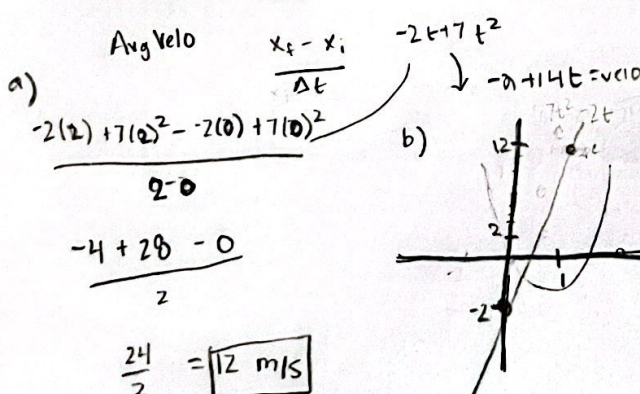 Avg Velo
x_f - x_i / Δt
-2t+7t²
-2+14t=velo
a)
-2(2)+7(2)² - -2(0)+7(0)² / 2-0
-4+28-0 / 2
24/2 = 12 m/s
b)
7t²-2t
12
2
1
-2